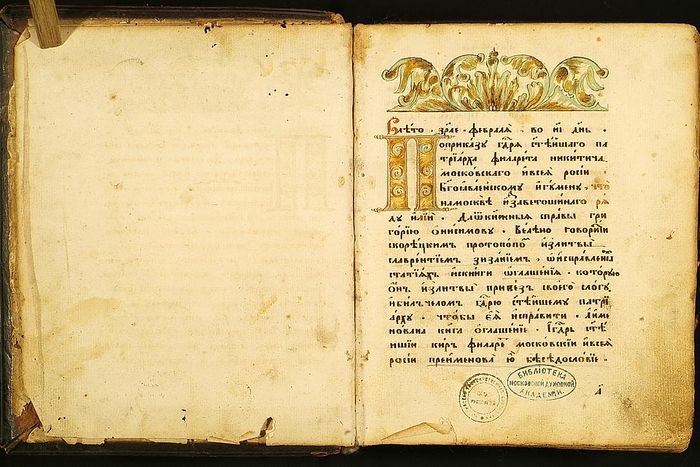 Влѣто · зрлє · февралѧ · во и҃і днь ·
Поприказу гдⷭ҇рѧ ст҃ѣишаго па
трїарха филарета никитича
московскаго ивсеѧ росїи ·
Бг҃оѧвленскому игумену , что
намосквѣ изаветошнаго рѧ
ду илїи · Да книжныѧ справы гри
горїю ѡнисимову · Велѣно говорити
скорецкимъ протопопо измитвы
славрентїемъ зизанїемъ · ѡисправленїи
статїѧхъ искниги ѡглашенїѧ · которую
онъ излитвы привезъ своего слогу
ибилъ челомъ гдⷭ҇рю ст҃ѣишему патрї
арху · чтобы еѧ исправити · Аиме
нована книга оглашенїе · Ігдⷭ҇рь ст҃ѣ
ишїи кѵръ филаре московскїи ивсеѧ
росїи преименова ю бесѣдословїе ·
БИБЛІОТЕКА
МОСКОВСКОЙ ДУХОВНОЙ
АКАДЕМІИ.